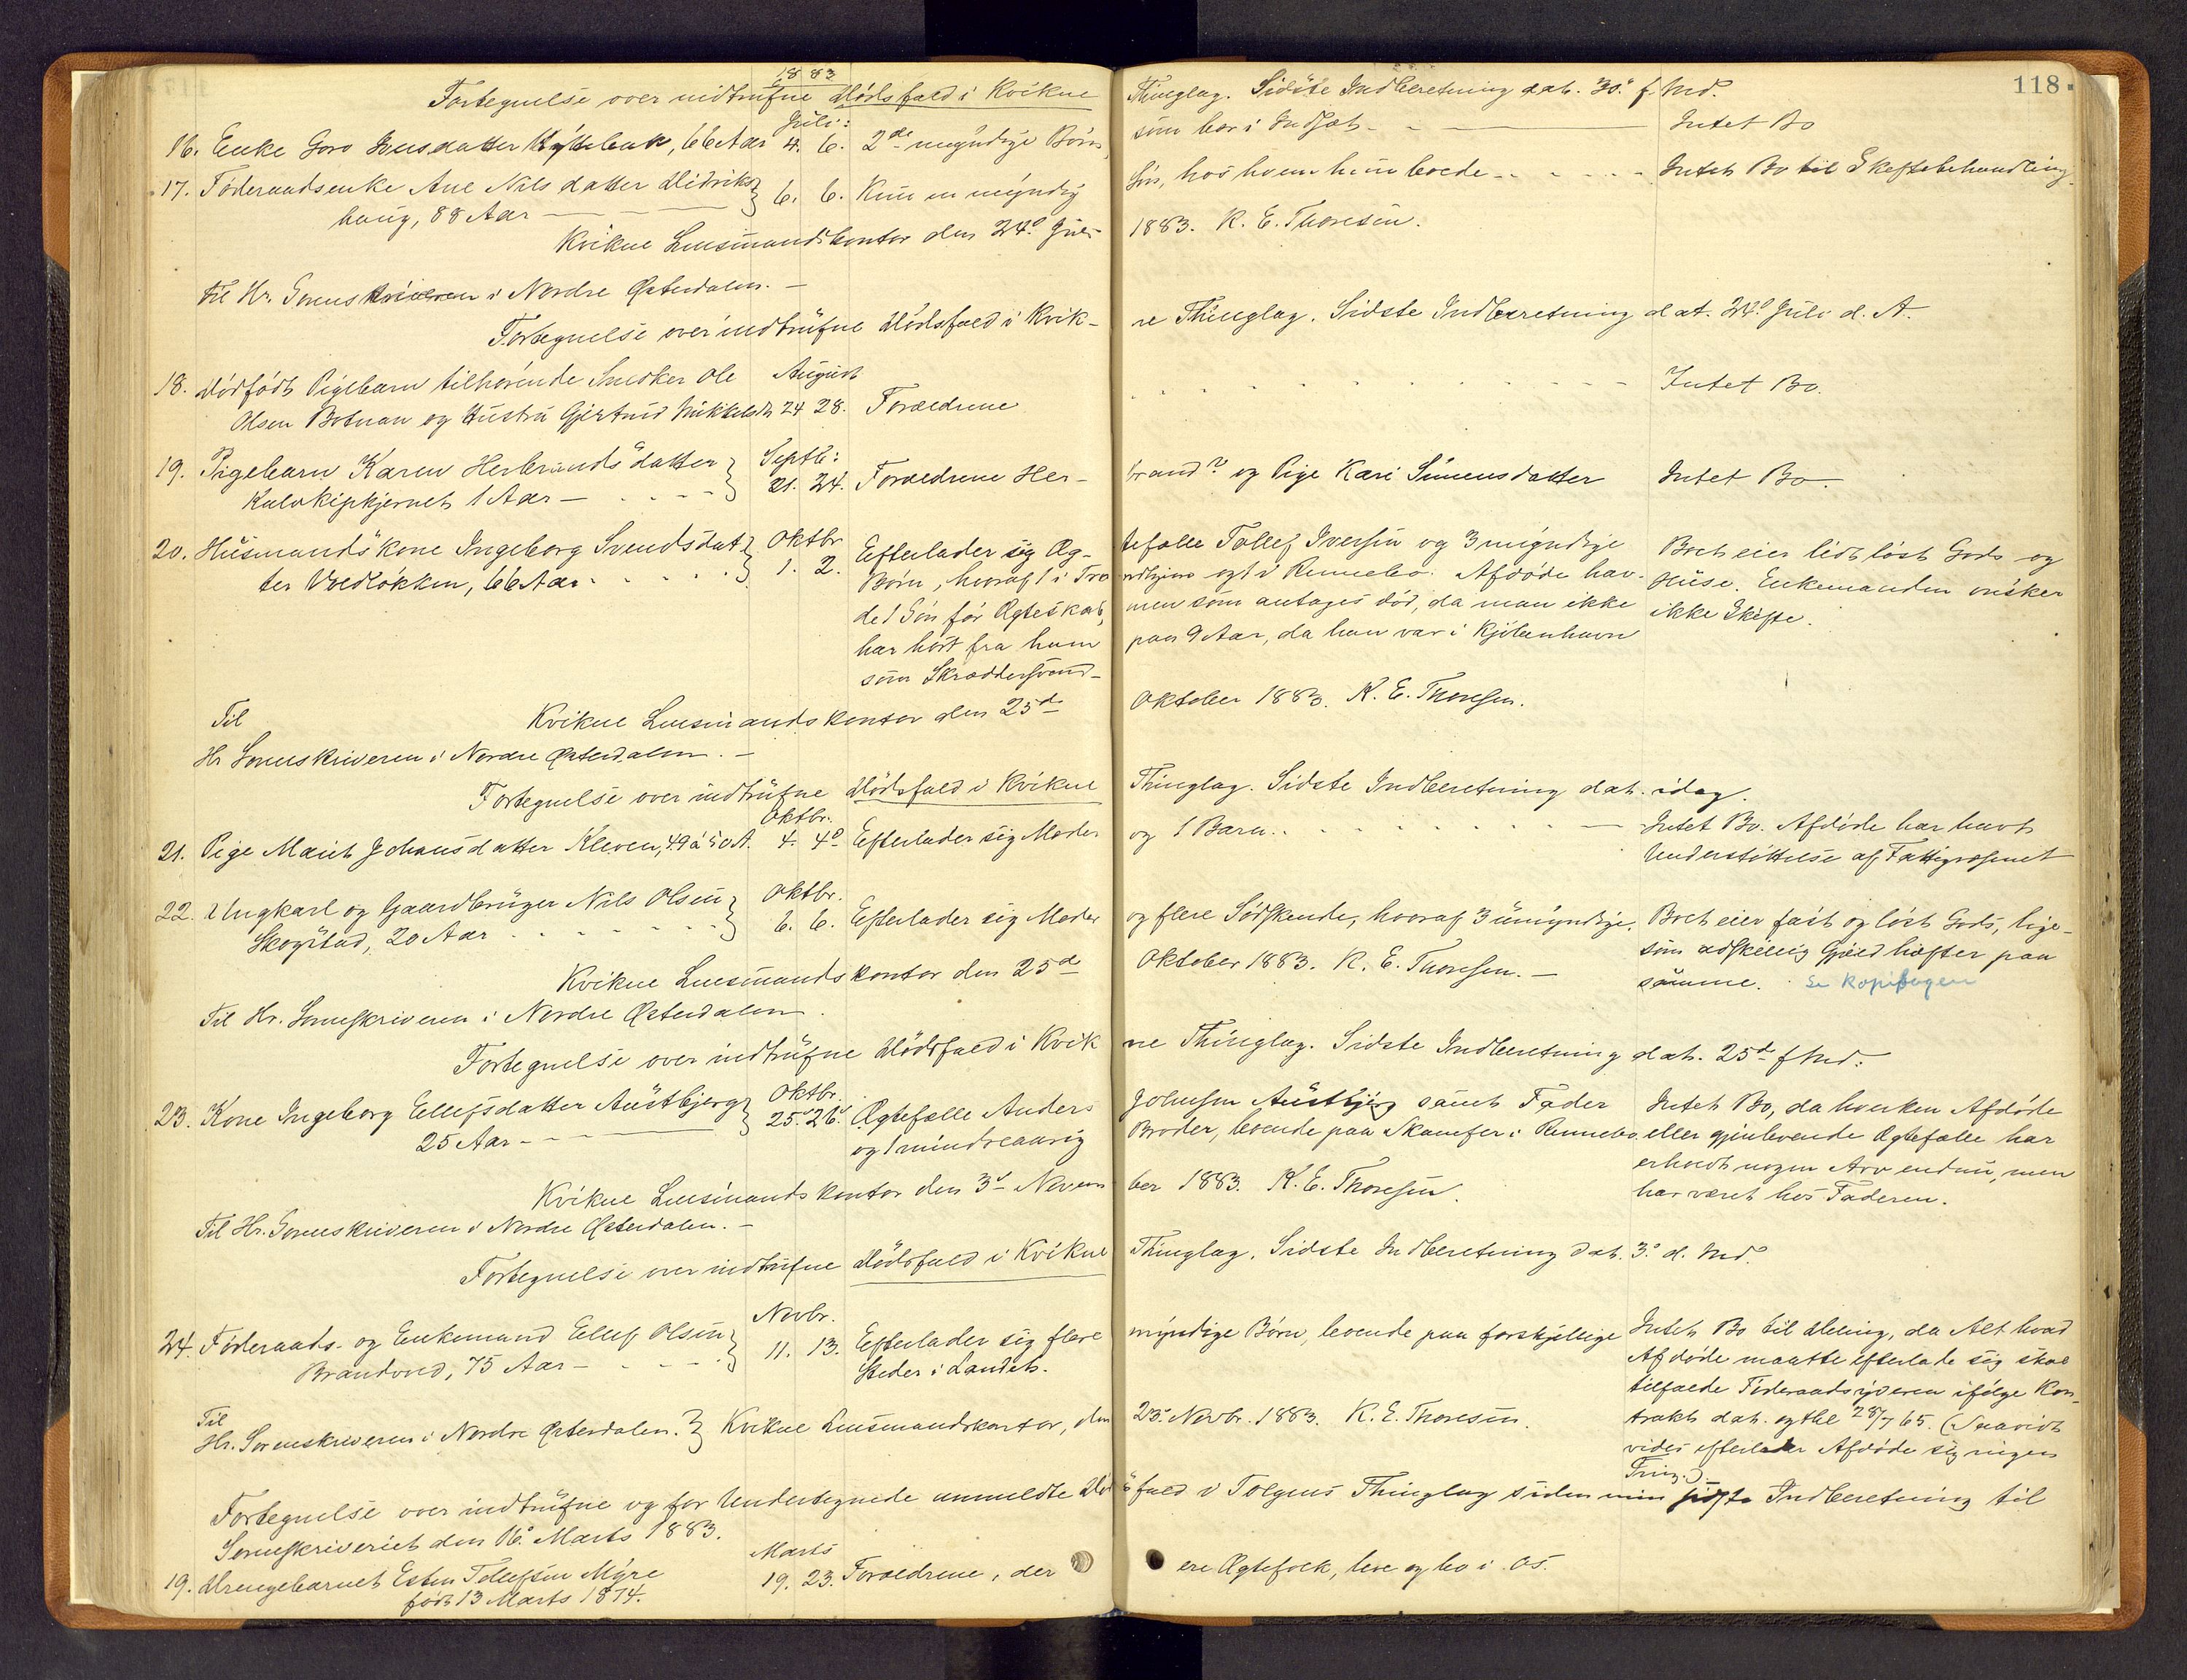 118.
1883
Fortegnelse over indtrufne Dødsfald i Kvikne Thinglag. Sidste Indberetning dat. 30. f. Md.
Juli:
16. Enke Goro Jensdatter 66 Aar 4. 6. 2de myndige Børn, som bor i Indset - - Intet Bo
17. Føderaadsenke Ane Nilsdatter Didriks- 6. 6. Kun en myndig Søn, hos hvem hun boede - - - - - Intet Bo til Skiftebehandling.
haug, 88 Aar
Kvikne Lensmandskontor den 24de Juli 1883. K. E. Thoresen.
Til Hr. Sorenskriveren i Nordre Østerdalen. -
Fortegnelse over indtrufne Dødsfald i Kvik- ne Thinglag. Sidste Indberetning dat. 24de Juli d. A.
18. Dødfødt Pigebarn tilhørende Snedker Ole August Intet Bo.
Olsen Botnan og Hustru Gjertrud Mikkelsdt. 24 28. Forældrene
19. Pigebarn Karen Herbrandsdatter Septb: Forældrene Her- brand? og Pige Kari Simensdatter Intet Bo.
Kaloskipkjernet 1 Aar - - - - 21. 24.
20. Husmandskone Ingeborg Svendsdat- Oktbr Efterlader sig Æg- tefælle Tollef Iversen og 3 myndige Boet eier lidt løst Gods og
ter Vedløkken, 66 Aar - - - - 1. 2. Børn, hvoraf 1 i Tro- ndhjem og 1 i Rennebo. Afdøde hav- Huse. Enkemanden ønsker
de 1 Søn før Ægteskab, men som antages død, da man ikke ikke Skifte.
har hørt fra ham paa 9 Aar, da han var i Kjøbenhavn
som Skræddersvend -
Til Kvikne Lensmandskontor den 25de Oktober 1883. K. E. Thoresen.
Hr. Sorenskriveren i Nordre Østerdalen. -
Fortegnelse over indtrufne Dødsfald i Kvikne Thinglag. Sidste Indberetning dat. idag.
Oktbr.
21. Pige Marit Johansdatter Kleven, 49 à 50 A. 4. 4de Efterlader sig Moder og 1 Barn. - - - - Intet Bo. Afdøde har havt
Understøttelse af Fattigvæsenet
22. Ungkarl og Gaardbruger Nils Olsen Oktbr.
Skogstad, 20 Aar - - - - 6. 6. Efterlader sig Moder og flere Sødskende, hvoraf 3 umyndige. Boet eier fast og løst Gods, lige-
som adskillig Gjæld hæfter paa
Kvikne Lensmandskontor den 25de Oktober 1883. K. E. Thoresen. - samme. Se kopibogen
Til Hr. Sorenskriveren i Nordre Østerdalen.
Fortegnelse over indtrufne Dødsfald i Kvik ne Thinglag. Sidste Indberetning dat. 25de f. Md.
23. Kone Ingeborg Ellefsdatter Austbjerg Oktbr. Ægtefælle Anders Johnsen Austbjerg samt Fader Intet Bo, da hverken Afdøde
25 Aar - - 25. 26. og 1 mindreaarig Broder, boende paa Skamfer i Rennebo. eller gjenlevende Ægtefælle har
erholdt nogen Arv endnu, men
Kvikne Lensmandskontor den 3de Novem ber 1883. K. E. Thoresen. har været hos Faderen.
Til Hr. Sorenskriveren i Nordre Østerdalen. -
Fortegnelse over indtrufne Dødsfald i Kvikne Thinglag. Sidste Indberetning dat. 3. d. Md.
Novbr.
24. Føderaads- og Enkemand Ellef Olsen 11. 13. Efterlader sig flere myndige Børn, boende paa forskjellige Intet Bo til Deling, da Alt hvad
Brandvold, 75 Aar - - - - Steder i Landet. Afdøde maatte efterlade sig skal
tilfalde Føderaadsyderen ifølge Kon-
Til trakt dat. og thl. 28/7 65. (Saavidt
Hr. Sorenskriveren i Nordre Østerdalen. Kvikne Lensmandskontor, den 23. Novbr. 1883. K. E. Thoresen. vides efterlader Afdøde sig ingen
Ting.)
Fortegnelse over indtrufne og for Undertegnede anmeldte Død sfald i Tolgens Thinglag siden min sidste Indberetning til
Sorenskriveriet den 16. Marts 1883.
Marts
19. Drengebarnet Esten Tollefsen Myre 19. 23. Forældrene, der ere Ægtefolk, leve og bo i Os.
født 13 Marts 1874.